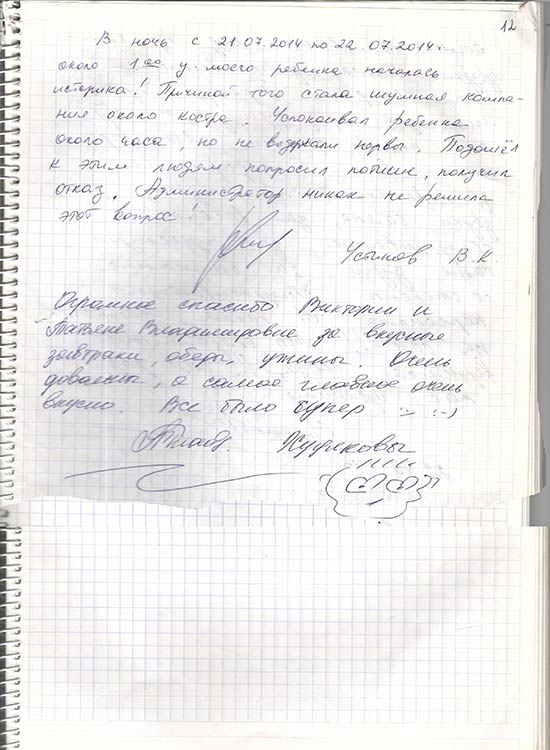 12
В ночь с 21.07.2014 по 22.07.2014г.
около 1.00 у моего ребенка началась
истерика! Причиной того стала шумная компа-
ния около костра. Успокаивал ребенка
около часа, но не выдержали нервы. Подошёл
к этим людям попросил потише, получил
отказ. Администратор никак не решила
этот вопрос!
Устинов В.К.
Огромное спасибо Виктории и
Татьяне Владимировне за вкусные
завтраки, обеды, ужины. Очень
довольны, а самое главное очень
вкусно. Все было супер :-)
Худяковы